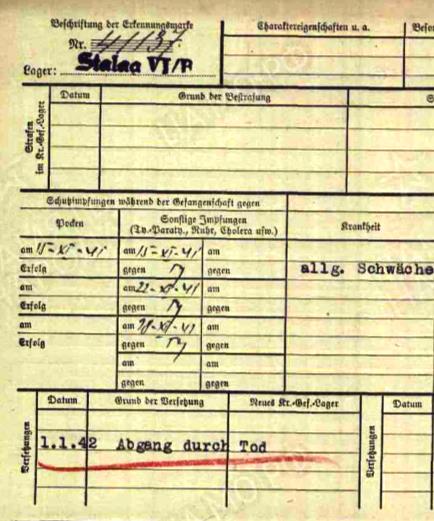 Beschriftung der Erkennungsmarke
Nr.
Lager: Stalag VI/B
Charaktereigenschaften u. a.
Datum
Grund der Bestrafung
Strafen
im Kr.-Gef.-Lager
Schutzimpfungen während der Gefangenschaft gegen
Pocken
Sonstige Impfungen
(Ty.-Paraty., Ruhr, Cholera usw.)
Krankheit
am 15-XI-41 am 15-XI-41 am
Erfolg gegen Ty gegen allg. Schwäche
am am 22-XI-41 am
Erfolg gegen Ty gegen
am am 28-XI-41 am
Erfolg gegen Ty gegen
am am
gegen gegen
Versetzungen
Datum
Grund der Versetzung
Neues Kr.-Gef.-Lager
Versetzungen
Datum
1.1.42 Abgang durch Tod